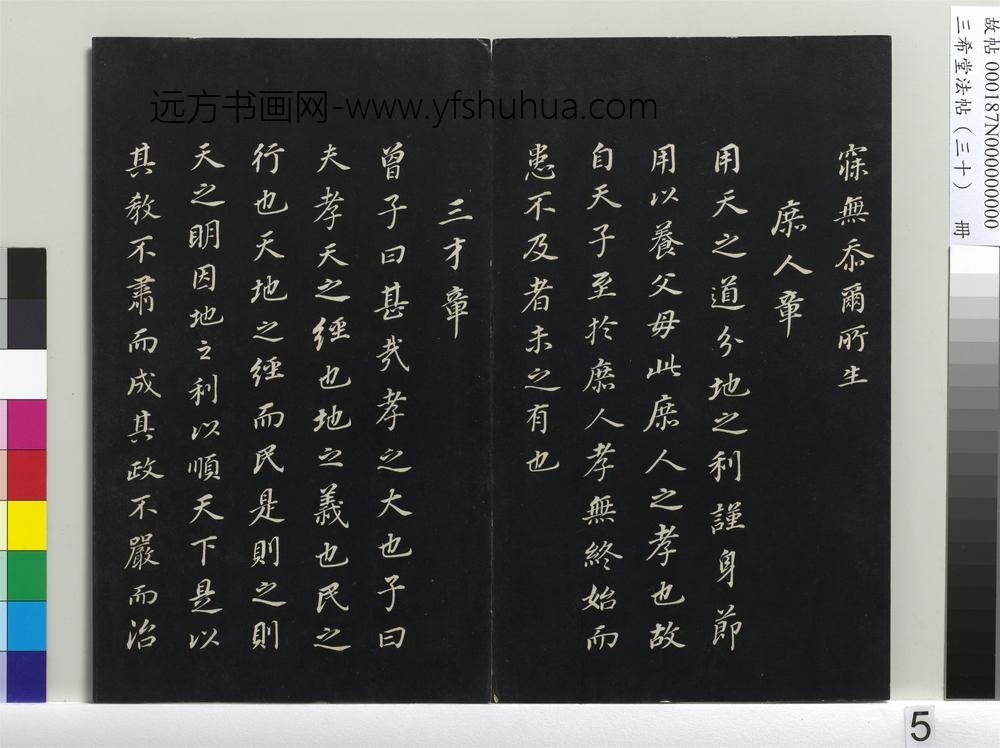 故帖 000187N000000000
三希堂法帖（三十） 冊
远方书画网-www.yfshuhua.com
寐無忝爾所生
庶人章
用天之道分地之利謹身節
用以養父母此庶人之孝也故
自天子至於庶人孝無終始而
患不及者未之有也
三才章
曾子曰甚哉孝之大也子曰
夫孝天之經也地之義也民之
行也天地之經而民是則之則
天之明因地之利以順天下是以
其教不肅而成其政不嚴而治
5